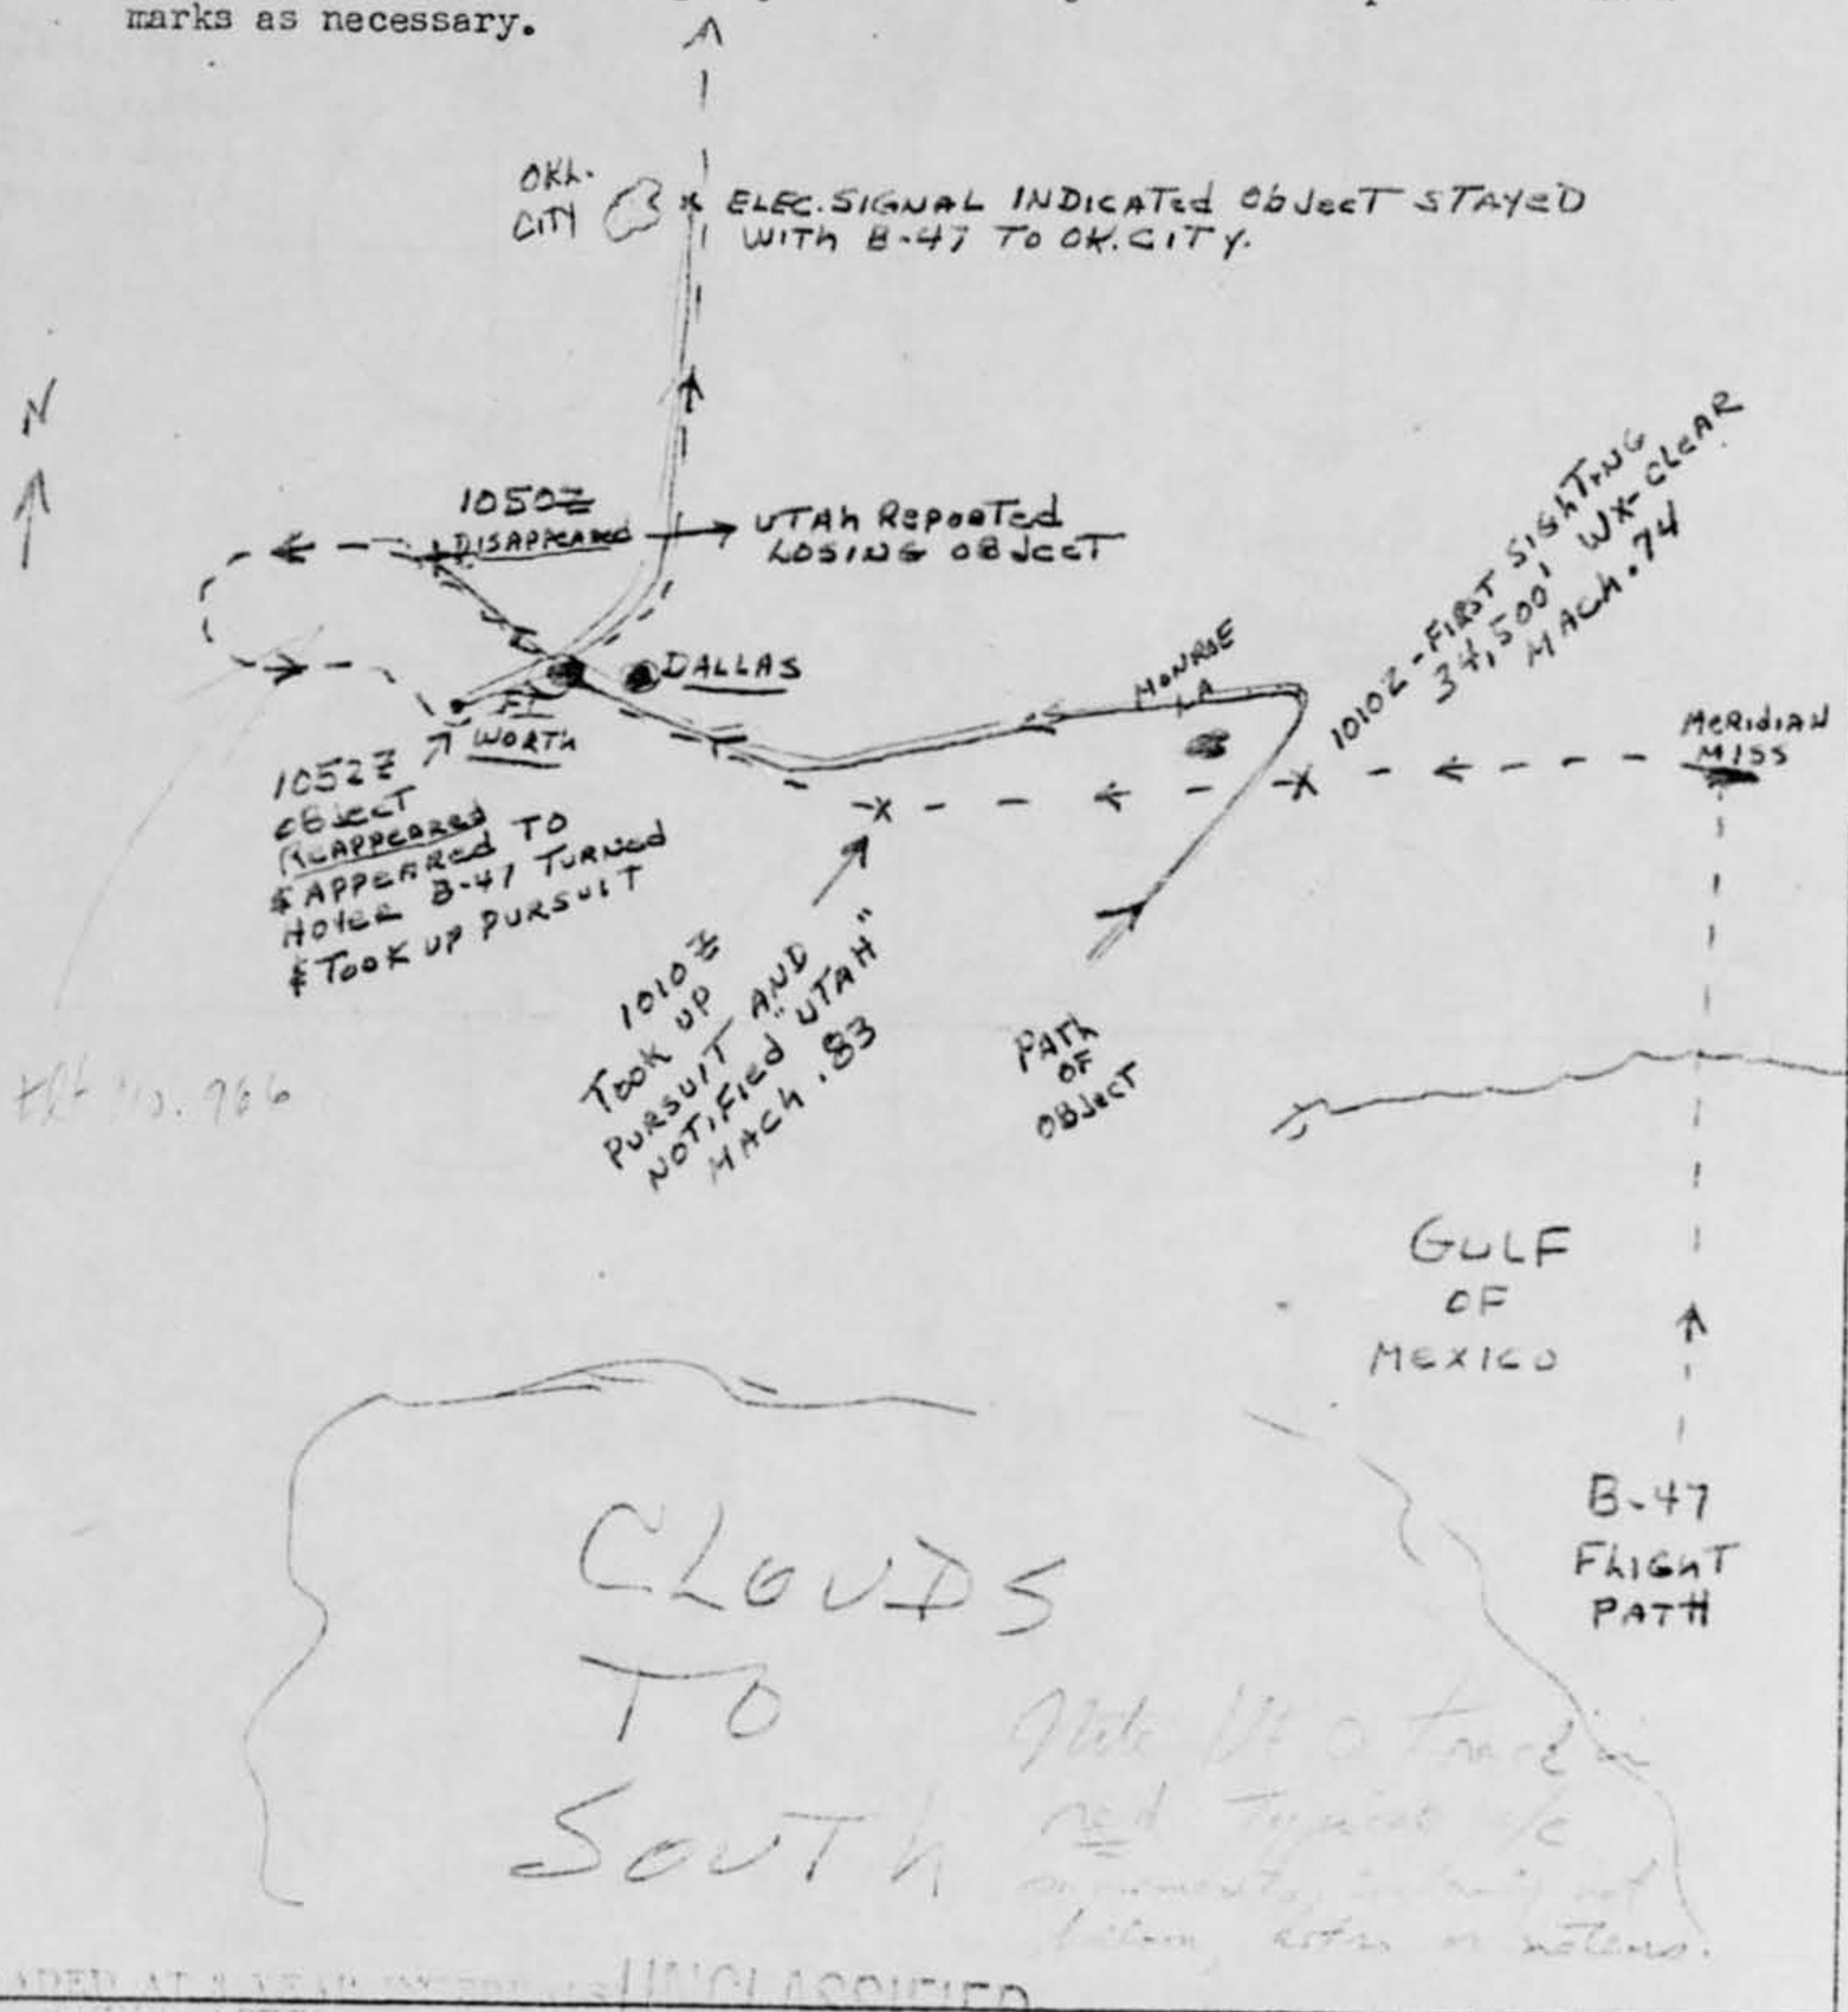 marks as necessary.
OKL.
CITY
ELEC. SIGNAL INDICATEd ObJecT STAYED
WITh B-47 TO OK. CITY.
N
1050Z
DISAPPEARED
UTAh RepoRTed
LOSING OBJecT
1010Z - FIRST SIGhTING
34,500', WX-CLEAR
MACh .74
MONROE
LA
DALLAS
FT
WORTh
MERIDIAN
MISS
1052Z
OBJecT
REAPPEARED
& APPEARED TO
HOVER B-47 TURNED
& TOOK UP PURSUIT
1010Z
TOOK UP
PURSUIT AND
NOTIFIED "UTAH"
MACh .83
PATh
OF
OBJecT
GULF
OF
MEXICO
B-47
FLIGhT
PATH
CLOUDS
TO
SOUTh
Note
red Typical a/c
UNCLASSIFIED